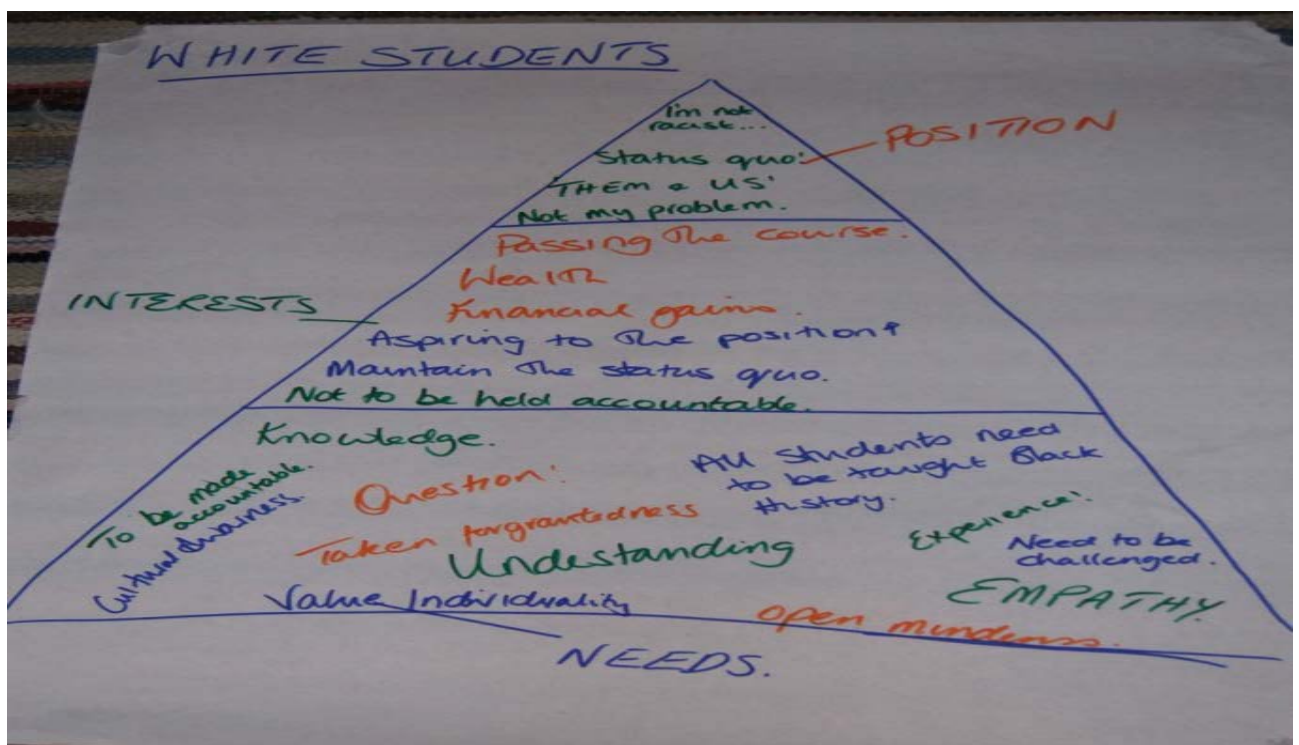 WHITE STUDENTS
I'm not
racist...
Status quo!
POSITION
'THEM & US'
Not my problem.
Passing the course.
Wealth
Financial gains.
INTERESTS
Aspiring to the position?
Maintain the status quo.
Not to be held accountable.
Knowledge.
To be made
accountable.
Cultural awarness.
Question!
Taken forgrantedness
All students need
to be taught Black
History.
Understanding
Experience!
Need to be
challenged.
Value Individuality
EMPATHY.
open mindness.
NEEDS.